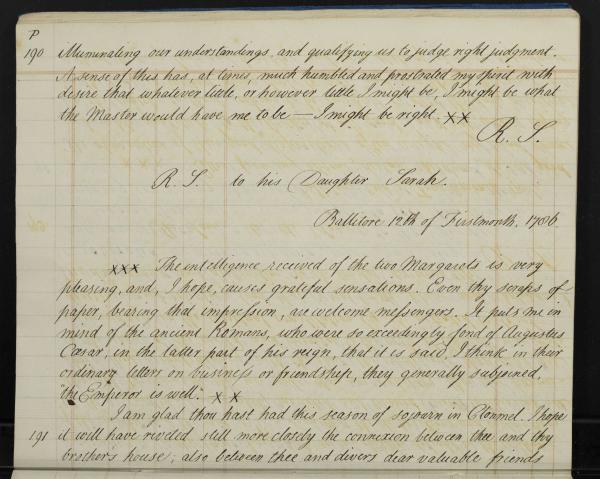 P
190 Illuminating our understandings, and qualifying us to judge right judgment.
A sense of this has, at times, much humbled and prostrated my spirit with
desire that whatever little, or however little I might be, I might be what
the Master would have me to be — I might be right. xx
R. S.
R. S. to his Daughter Sarah.
Ballitore 12th of Firstmonth, 1786.
xxx The intelligence received of the two Margarets is very
pleasing, and, I hope, causes grateful sensations. Even thy scraps of
paper, bearing that impression, are welcome messengers. It puts me in
mind of the ancient Romans, who were so exceedingly fond of Augustus
Cæsar, in the latter part of his reign, that it is said, I think in their
ordinary letters on business or friendship, they generally subjoined,
"the Emperor is well". x x
I am glad thou hast had this season of sojourn in Clonmel. I hope
191 it will have riveted still more closely the connexion between thee and thy
brother's house; also between thee and divers dear valuable friends